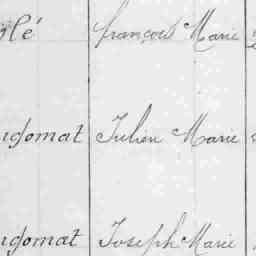 lé françois Marie
ugomat Julien Marie
ugomat Joseph Marie